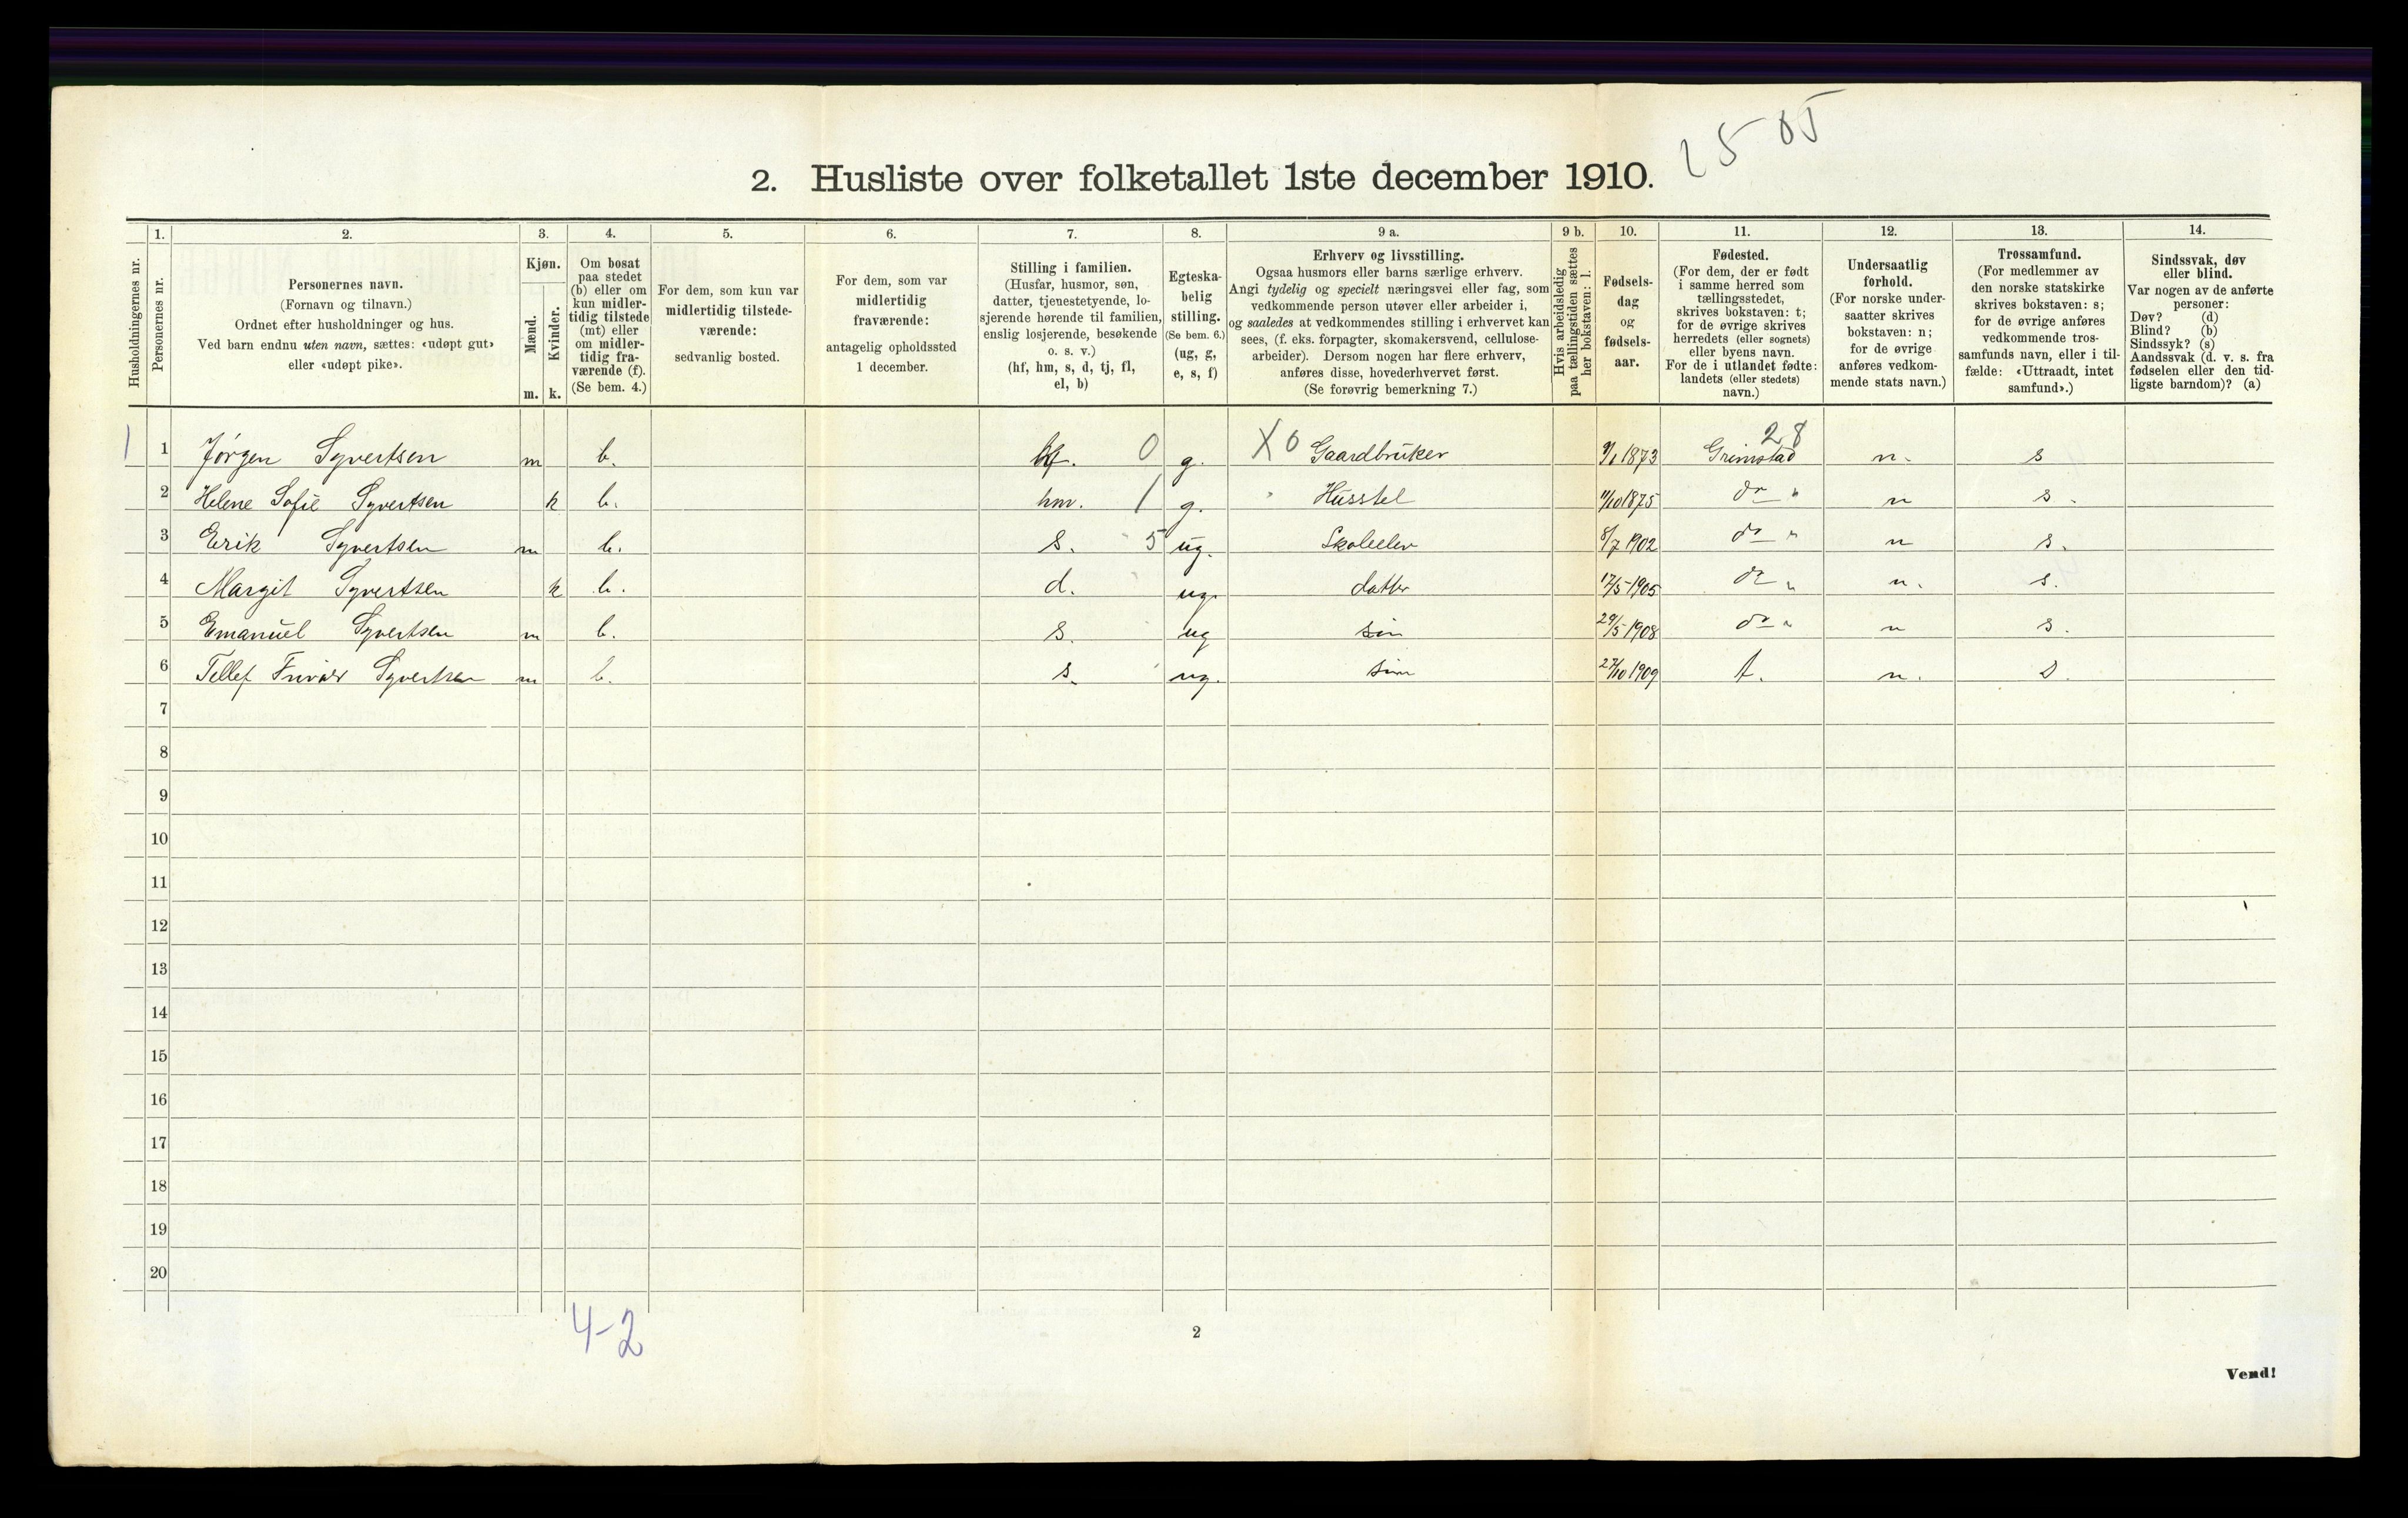 25 05
2. Husliste over folketallet 1ste december 1910.
Husholdningernes nr.
1.
Personernes nr.
2.
Personernes navn.
(Fornavn og tilnavn.)
Ordnet efter husholdninger og hus.
Ved barn endnu uten navn, sættes: «udøpt gut»
eller «udøpt pike».
3.
Kjøn.
Mænd.
Kvinder.
m. k.
4.
Om bosat
paa stedet
(b) eller om
kun midler-
tidig tilstede
(mt) eller
om midler-
tidig fra-
værende (f).
(Se bem. 4.)
5.
For dem, som kun var
midlertidig tilstede-
værende:
sedvanlig bosted.
6.
For dem, som var
midlertidig
fraværende:
antagelig opholdssted
1 december.
7.
Stilling i familien.
(Husfar, husmor, søn,
datter, tjenestetyende, lo-
sjerende hørende til familien,
enslig losjerende, besøkende
o. s. v.)
(hf, hm, s, d, tj, fl,
el, b)
8.
Egteska-
belig
stilling.
(Se bem. 6.)
(ug, g,
e, s, f)
9 a.
Erhverv og livsstilling.
Ogsaa husmors eller barns særlige erhverv.
Angi tydelig og specielt næringsvei eller fag, som
vedkommende person utøver eller arbeider i,
og saaledes at vedkommendes stilling i erhvervet kan
sees, (f. eks. forpagter, skomakersvend, cellulose-
arbeider). Dersom nogen har flere erhverv,
anføres disse, hovederhvervet først.
(Se forøvrig bemerkning 7.)
9 b.
Hvis arbeidsledig
paa tællingstiden sættes
her bokstaven: l.
10.
Fødsels-
dag
og
fødsels-
aar.
11.
Fødested.
(For dem, der er født
i samme herred som
tællingsstedet,
skrives bokstaven: t;
for de øvrige skrives
herredets (eller sognets)
eller byens navn.
For de i utlandet fødte:
landets (eller stedets)
navn.)
12.
Undersaatlig
forhold.
(For norske under-
saatter skrives
bokstaven: n;
for de øvrige
anføres vedkom-
mende stats navn.)
13.
Trossamfund.
(For medlemmer av
den norske statskirke
skrives bokstaven: s;
for de øvrige anføres
vedkommende tros-
samfunds navn, eller i til-
fælde: «Uttraadt, intet
samfund».)
14.
Sindssvak, døv
eller blind.
Var nogen av de anførte
personer:
Døv? (d)
Blind? (b)
Sindssyk? (s)
Aandssvak (d. v. s. fra
fødselen eller den tid-
ligste barndom)? (a)
28
1 1 Jørgen Syvertsen m b. hf. 0 g. X0 Gaardbruker 1873 Grimstad n. s
2 Helene Sofie Syvertsen k b. hm. 1 g. Husstel 11/10 1875 do " n s.
3 Erik Syvertsen m b. s. 5 ug. Skoleelev 8/7 1902 do " n s.
4 Margit Syvertsen k b. d. ug. datter 17/5 1905 do " n. s.
5 Emanuel Syvertsen m b. s. ug søn 29/5 1908 do " n s.
6 Tellef Syvertsen m b. s. ug. søn 27/10 1909 t. n. s.
7
8
9
10
11
12
13
14
15
16
17
18
19
20
4-2
2
Vend!